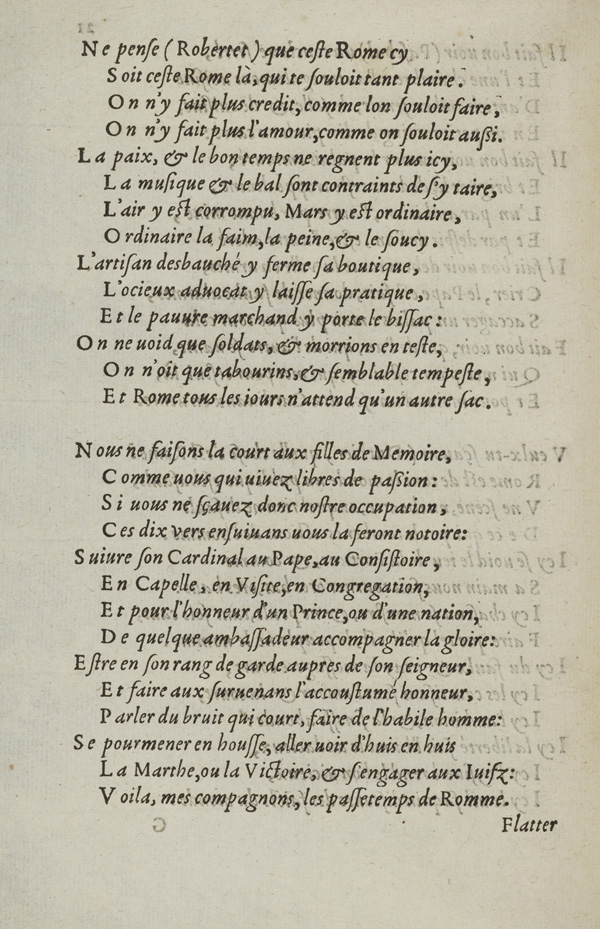 Ne pense (Robertet) que ceste Rome cy
Soit ceste Rome là, qui te souloit tant plaire.
On n'y fait plus credit, comme lon souloit faire,
On n'y fait plus l'amour, comme on souloit aussi.
La paix, & le bon temps ne regnent plus icy,
La musique & le bal sont contraints de s'y taire,
L'air y est corrompu, Mars y est ordinaire,
Ordinaire la faim, la peine, & le soucy.
L'artisan desbauché y ferme sa boutique,
L'ocieux aduocat y laisse sa pratique,
Et le pauure marchand y porte le bissac:
On ne uoid que soldats, & morrions en teste,
On n'oit que tabourins, & semblable tempeste,
Et Rome tous les iours n'attend qu'un autre sac.
Nous ne faisons la court aux filles de Memoire,
Comme uous qui uiuez libres de passion:
Si uous ne sçauez donc nostre occupation,
Ces dix vers ensuiuans uous la feront notoire:
Suiure son Cardinal au Pape, au Consistoire,
En Capelle, en Visite, en Congregation,
Et pour l'honneur d'un Prince, ou d'une nation,
De quelque ambassadeur accompagner la gloire:
Estre en son rang de garde aupres de son seigneur,
Et faire aux suruenans l'accoustumé honneur,
Parler du bruit qui court, faire de l'habile homme:
Se pourmener en housse, aller uoir d'huis en huis
La Marthe, ou la Victoire, & s'engager aux Iuifz:
Voila, mes compagnons, les passetemps de Romme.
Flatter